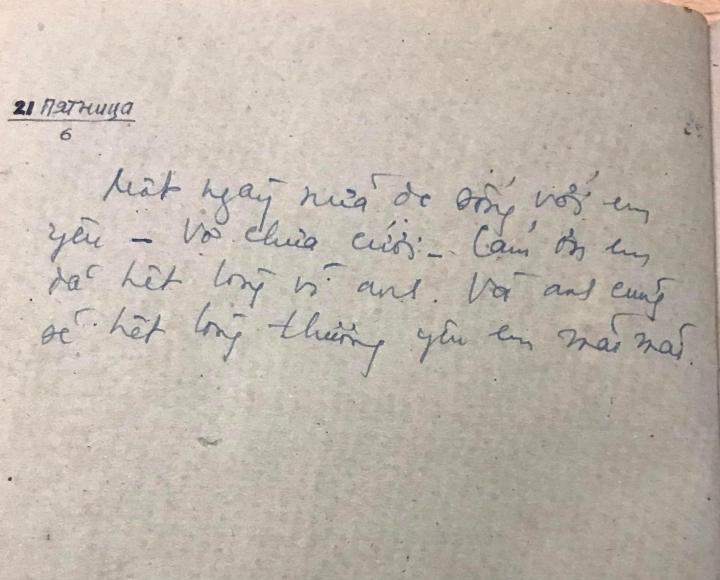 21 Пятница
6
Một ngày nữa đc sống với em
yêu – Vợ chưa cưới – Cám ơn em
đã hết lòng vì anh. Và anh cũng
sẽ hết lòng thương yêu em mãi mãi.